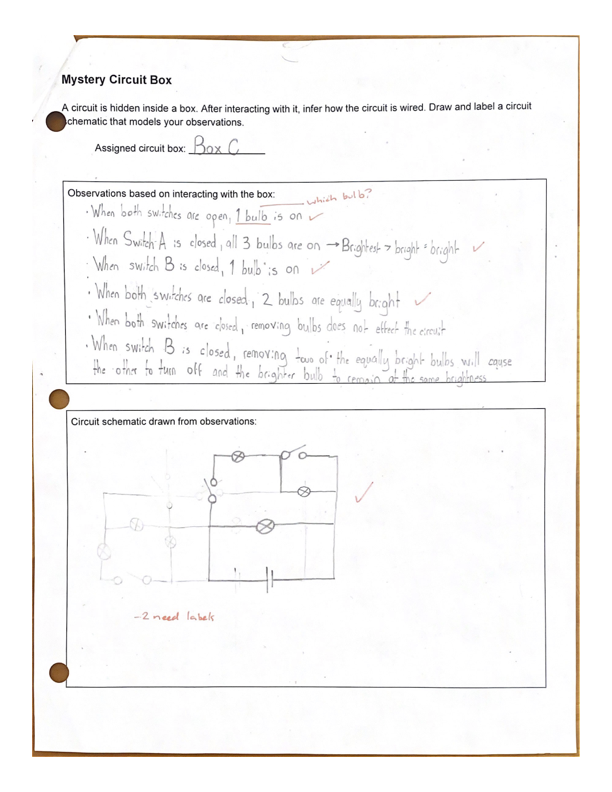 Mystery Circuit Box
A circuit is hidden inside a box. After interacting with it, infer how the circuit is wired. Draw and label a circuit
schematic that models your observations.
Assigned circuit box: Box C
Observations based on interacting with the box:
which bulb?
· When both switches are open, 1 bulb is on ✓
· When Switch A is closed, all 3 bulbs are on → Brightest > bright = bright ✓
· When switch B is closed, 1 bulb is on ✓
· When both switches are closed, 2 bulbs are equally bright ✓
· When both switches are closed, removing bulbs does not effect the circuit
· When switch B is closed, removing two of the equally bright bulbs will cause
the other to turn off and the brighter bulb to remain at the same brightness
Circuit schematic drawn from observations:
✓
-2 need labels